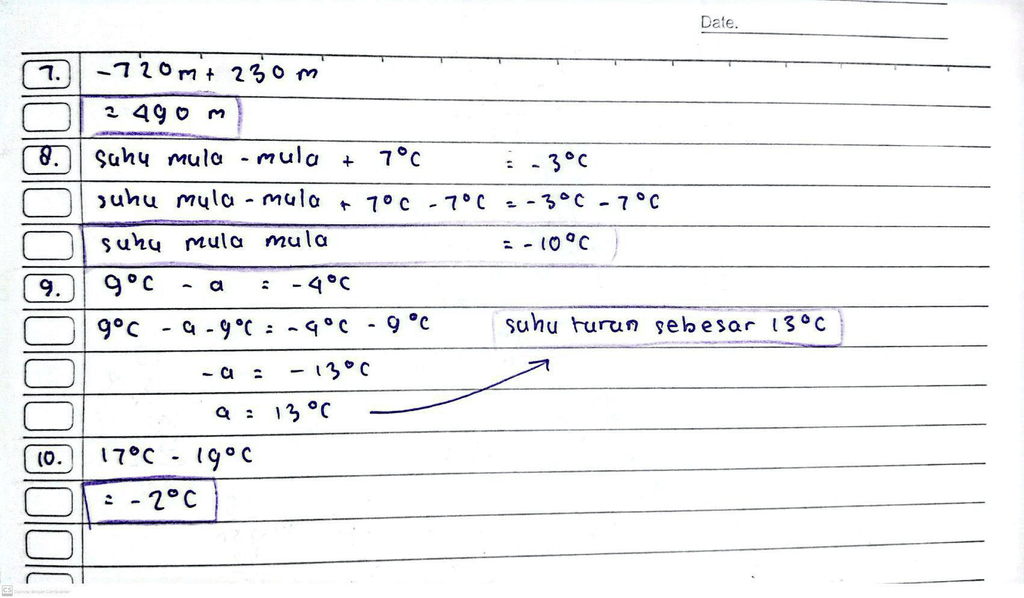 Date.
7. -720 m + 230 m
= 490 m
8. suhu mula-mula + 7°C = -3°C
suhu mula-mula + 7°C - 7°C = -3°C - 7°C
suhu mula mula = -10°C
9. 9°C - a = -4°C
9°C - a - 9°C = -4°C - 9°C suhu turun sebesar 13°C
-a = -13°C
a = 13°C
10. 17°C - 19°C
= -2°C
CS